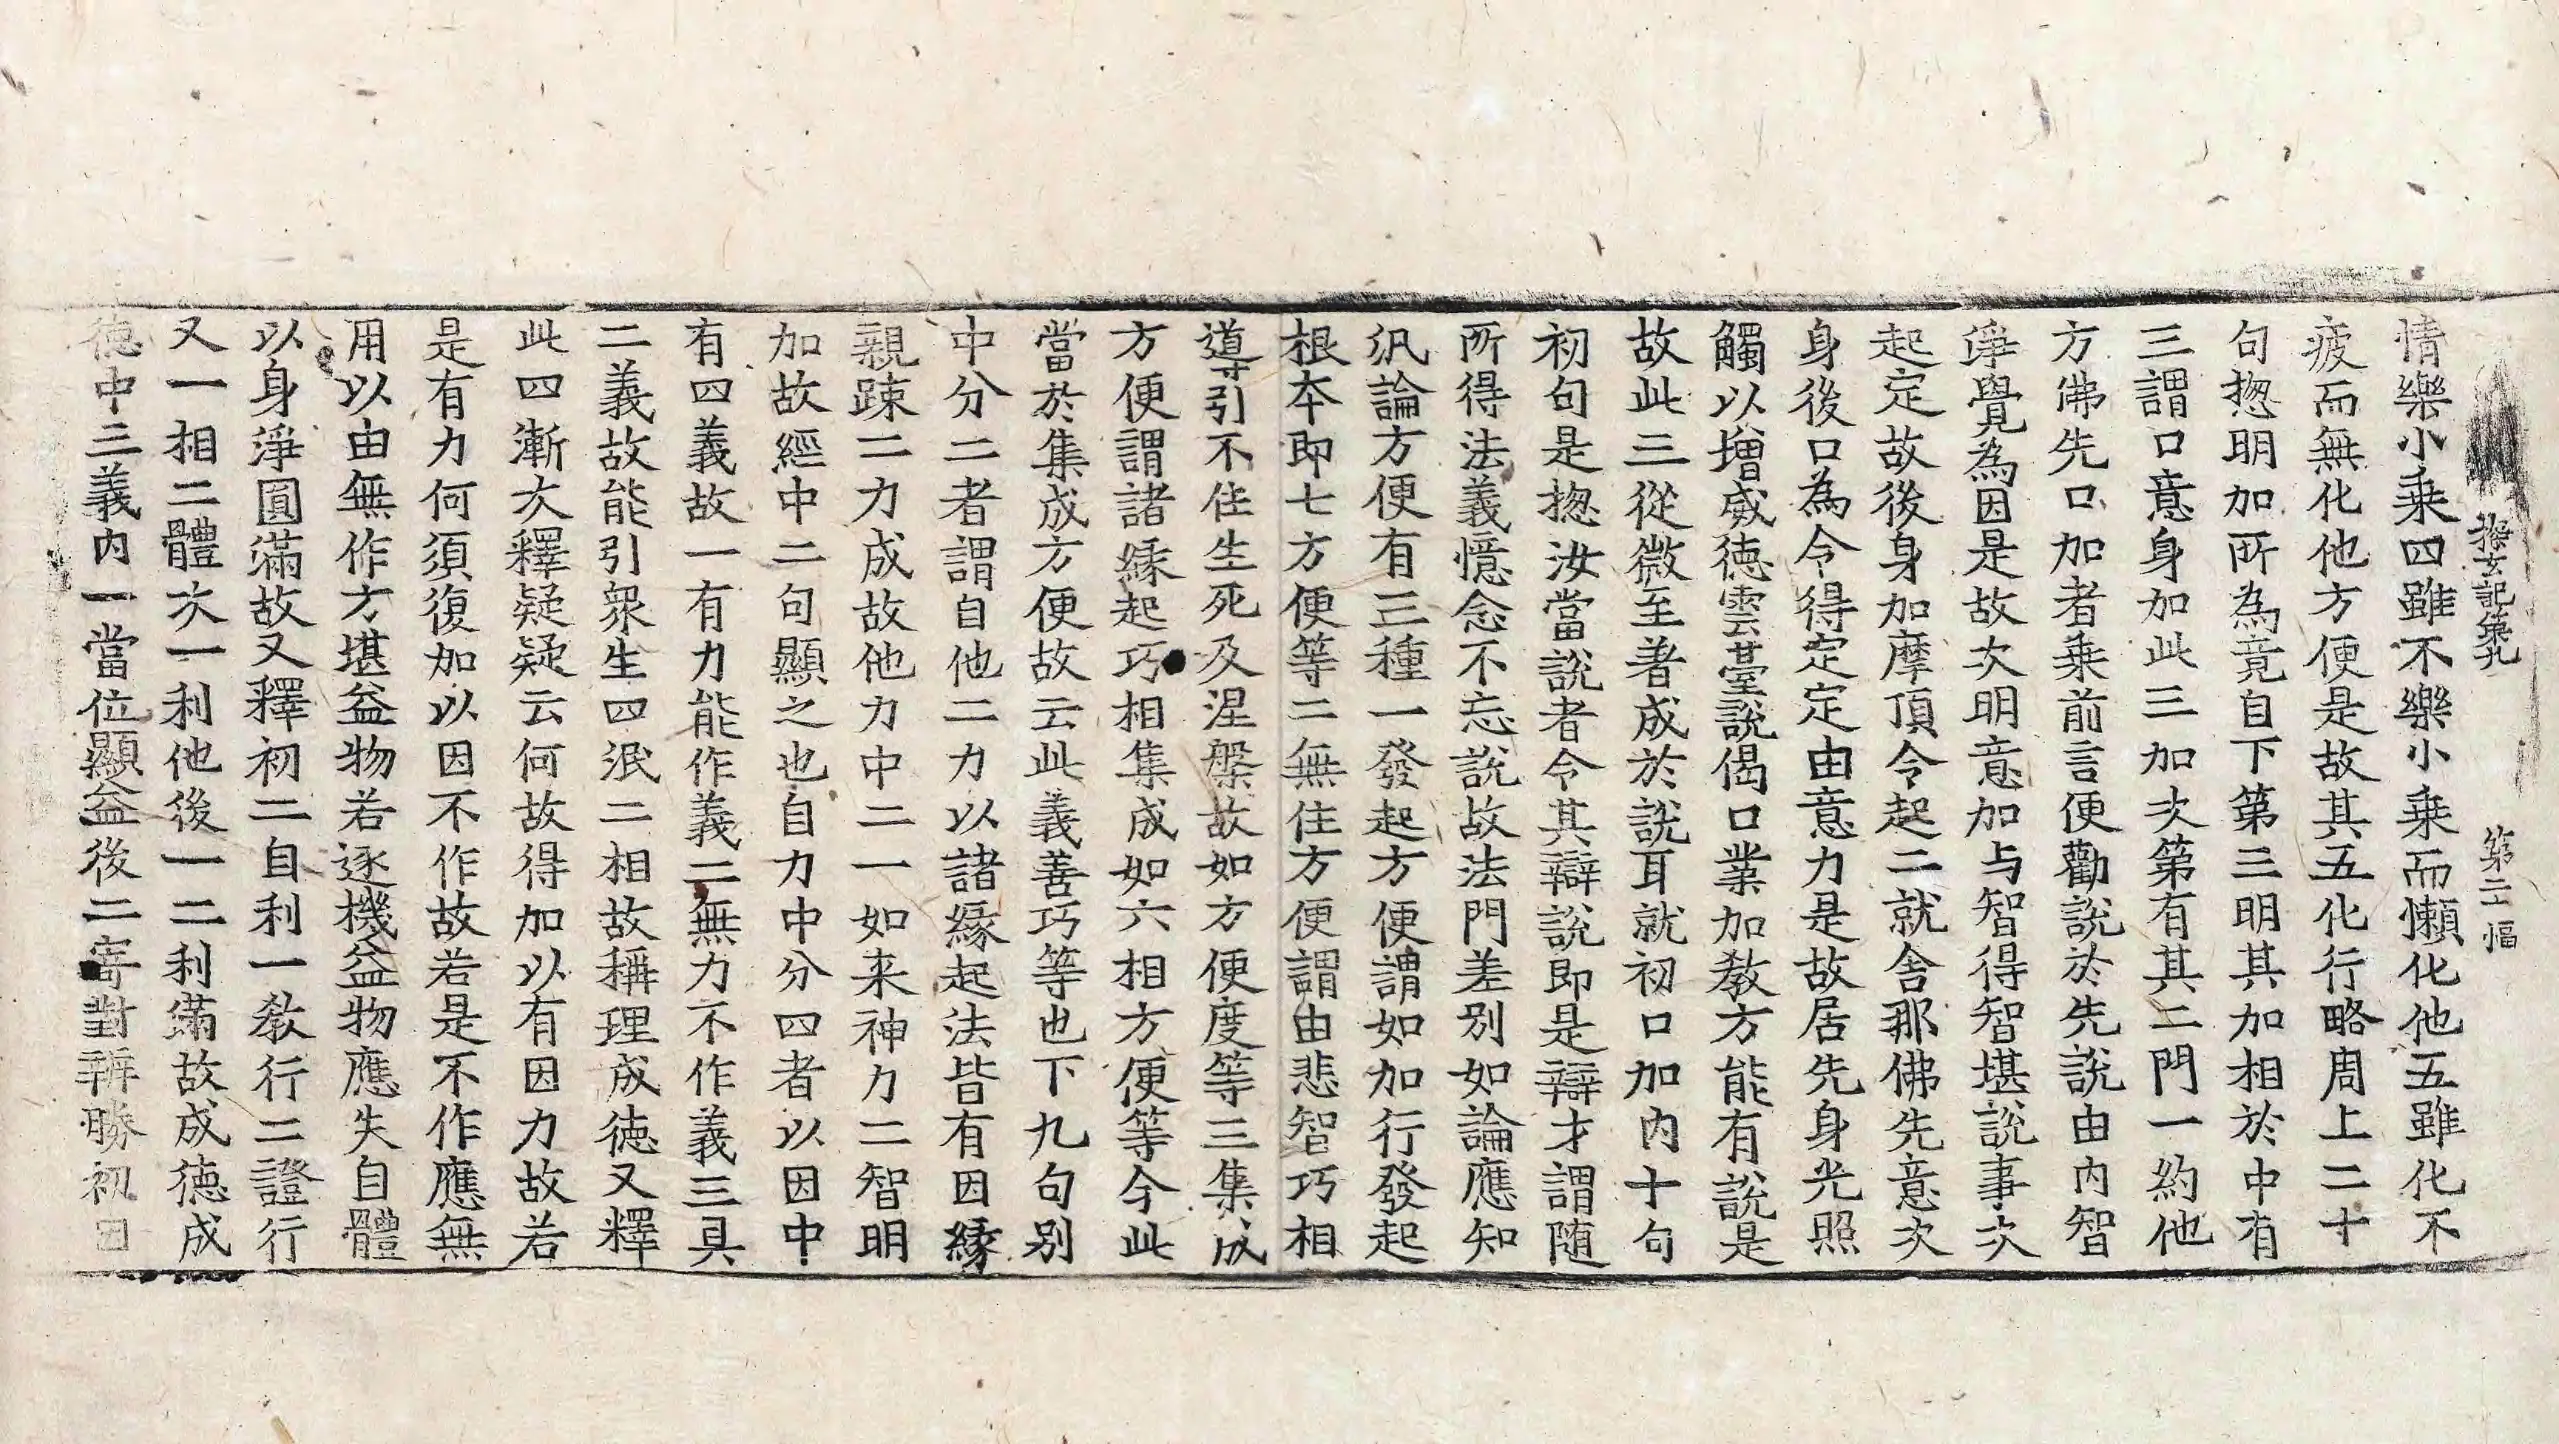 探玄記第九 第二十幅
情樂小乗四雖不樂小乗而懶化他五雖化不
疲而無化他方便是故其五化行略周上二十
句揔明加所為竟自下第三明其加相於中有
三謂口意身加此三加次第有其二門一約他
方佛先口加者乗前言便勸說於先說由内智
淨覺為因是故次明意加与智得智堪說事次
起定故後身加摩頂令起二就舍那佛先意次
身後口為令得定定由意力是故居先身光照
觸以增威徳雲䑓說偈口業加教方能有說是
故此三從微至著成於説耳就初口加内十句
初句是揔汝當説者令其辯說即是辯才謂随
所得法義憶念不忘說故法門差別如論應知
汎論方便有三種一發起方便謂如加行發起
根夲即七方便等二無住方便謂由悲智巧相
導引不住生死及涅槃故如方便度等三集成
方便謂諸緣起巧相集成如六相方便等今此
當於集成方便故云此義善巧等也下九句別
中分二者謂自他二力以諸緣起法皆有因緣
親踈二力成故他力中二一如来神力二智明
加故經中二句顯之也自力中分四者以因中
有四義故一有力能作義二無力不作義三具
二義故能引衆生四泯二相故稱理成徳又釋
此四漸次釋疑疑云何故得加以有因力故若
是有力何須復加以因不作故若是不作應無
用以由無作方堪益物若逐機益物應失自體
以身淨圓滿故又釋初二自利一教行二證行
又一相二體次一利他後一二利滿故成徳成
徳中三義内一當位顯益後二寄對辨勝初曰